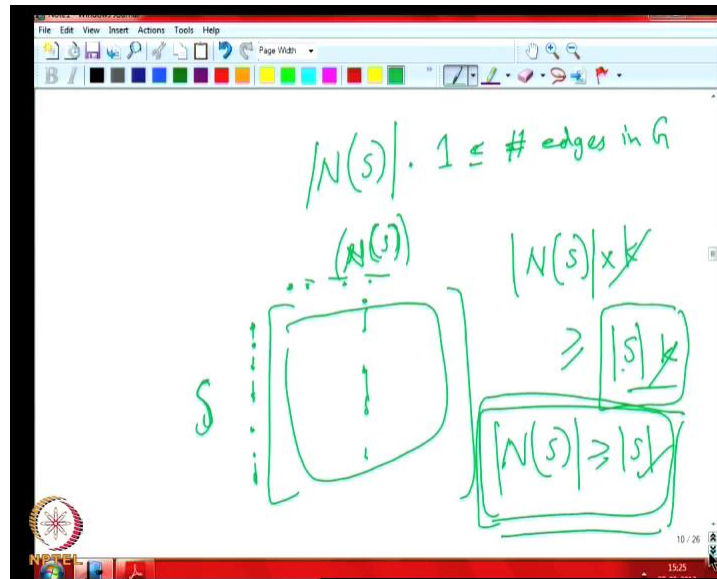 File Edit View Insert Actions Tools Help
Page Width
B I
|N(S)| · 1 ≤ # edges in G
(N(S))
|N(S)| × k
≥ |S| k
S
|N(S)| ≥ |S|
10 / 26
NPTEL
15:25